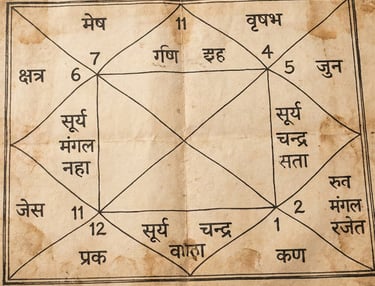 मेष 11 वृषभ
7 र्गण इह 4
क्षत्र 6 5 जुन
सूर्य
मंगल
नहा
सूर्य
चन्द्र
सता
जेस 11
2 रुत
मंगल
रजेत
12 सूर्य चन्द्र 1
प्रक कण